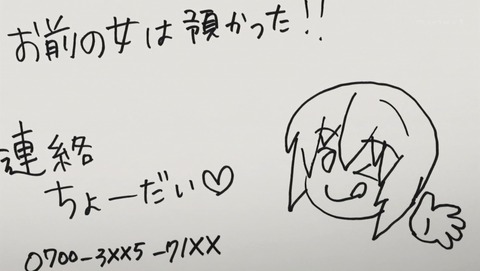 お前の女は預かった!!
連絡
ちょーだい♡
0700-3XX5-71XX